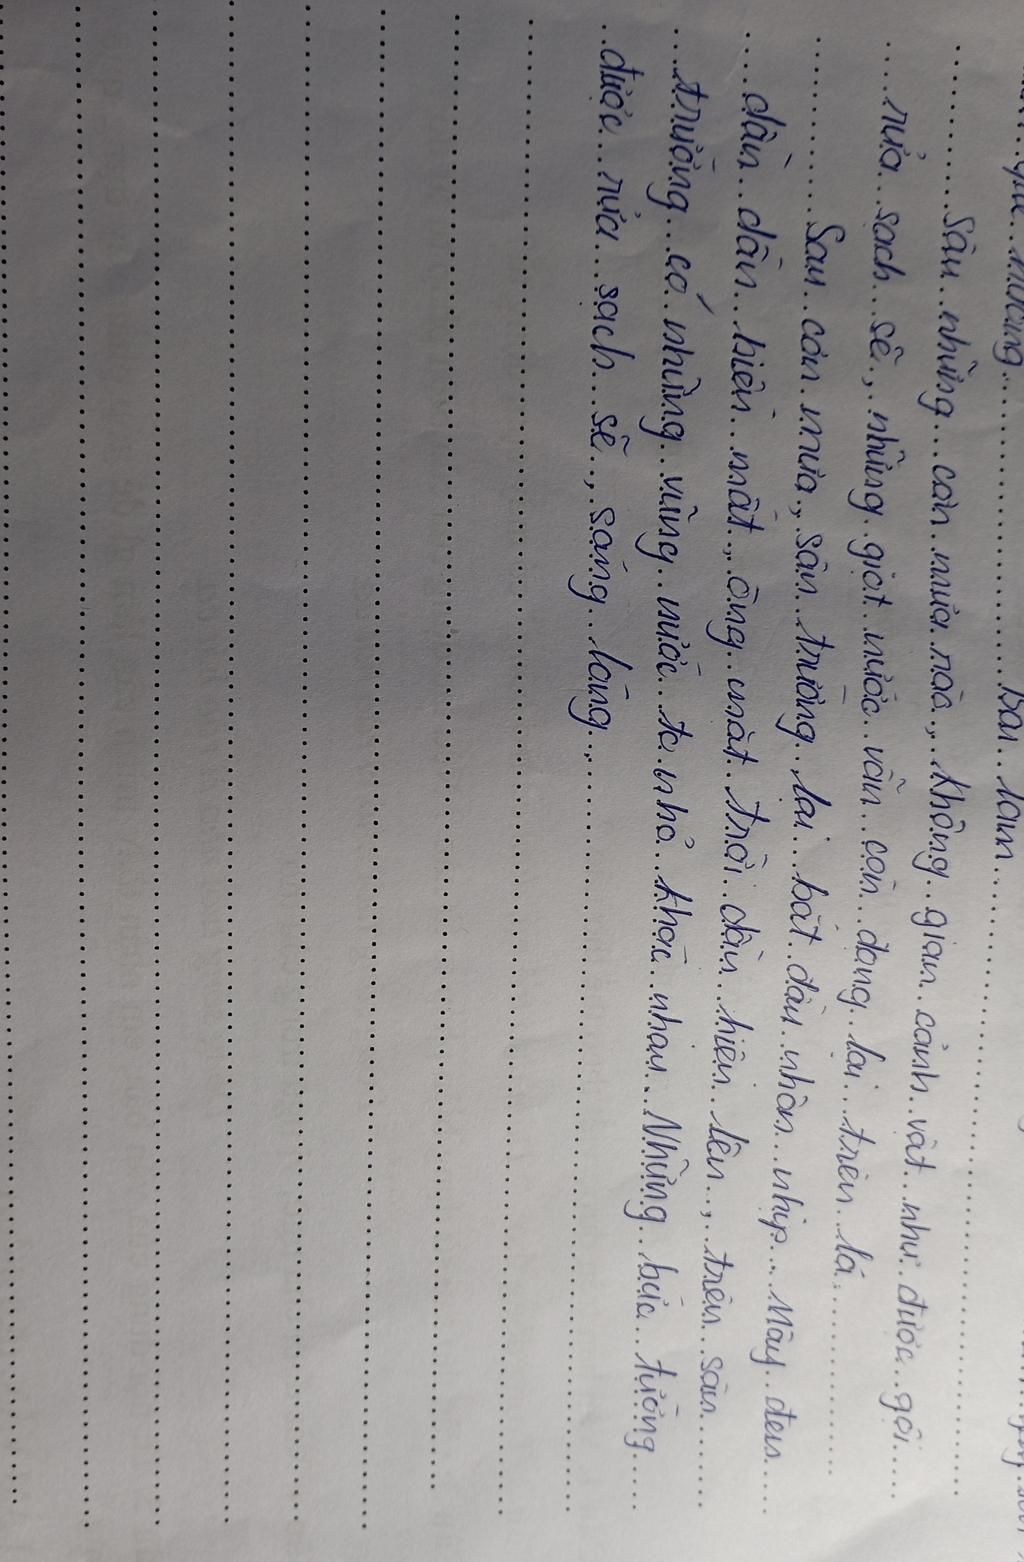 Bài làm
Sâu những cơn mưa rào, không gian cảnh vật như được gội
rửa sạch sẽ, những giọt nước vẫn còn đọng lại trên lá
Sau cơn mưa, sân trường lại bắt đầu nhộn nhịp. Mây đen
dần dần biến mất, ông mặt trời dần hiện lên, trên sân
trường có những vũng nước to nhỏ khác nhau. Những bức tường
được rửa sạch sẽ, sáng láng.